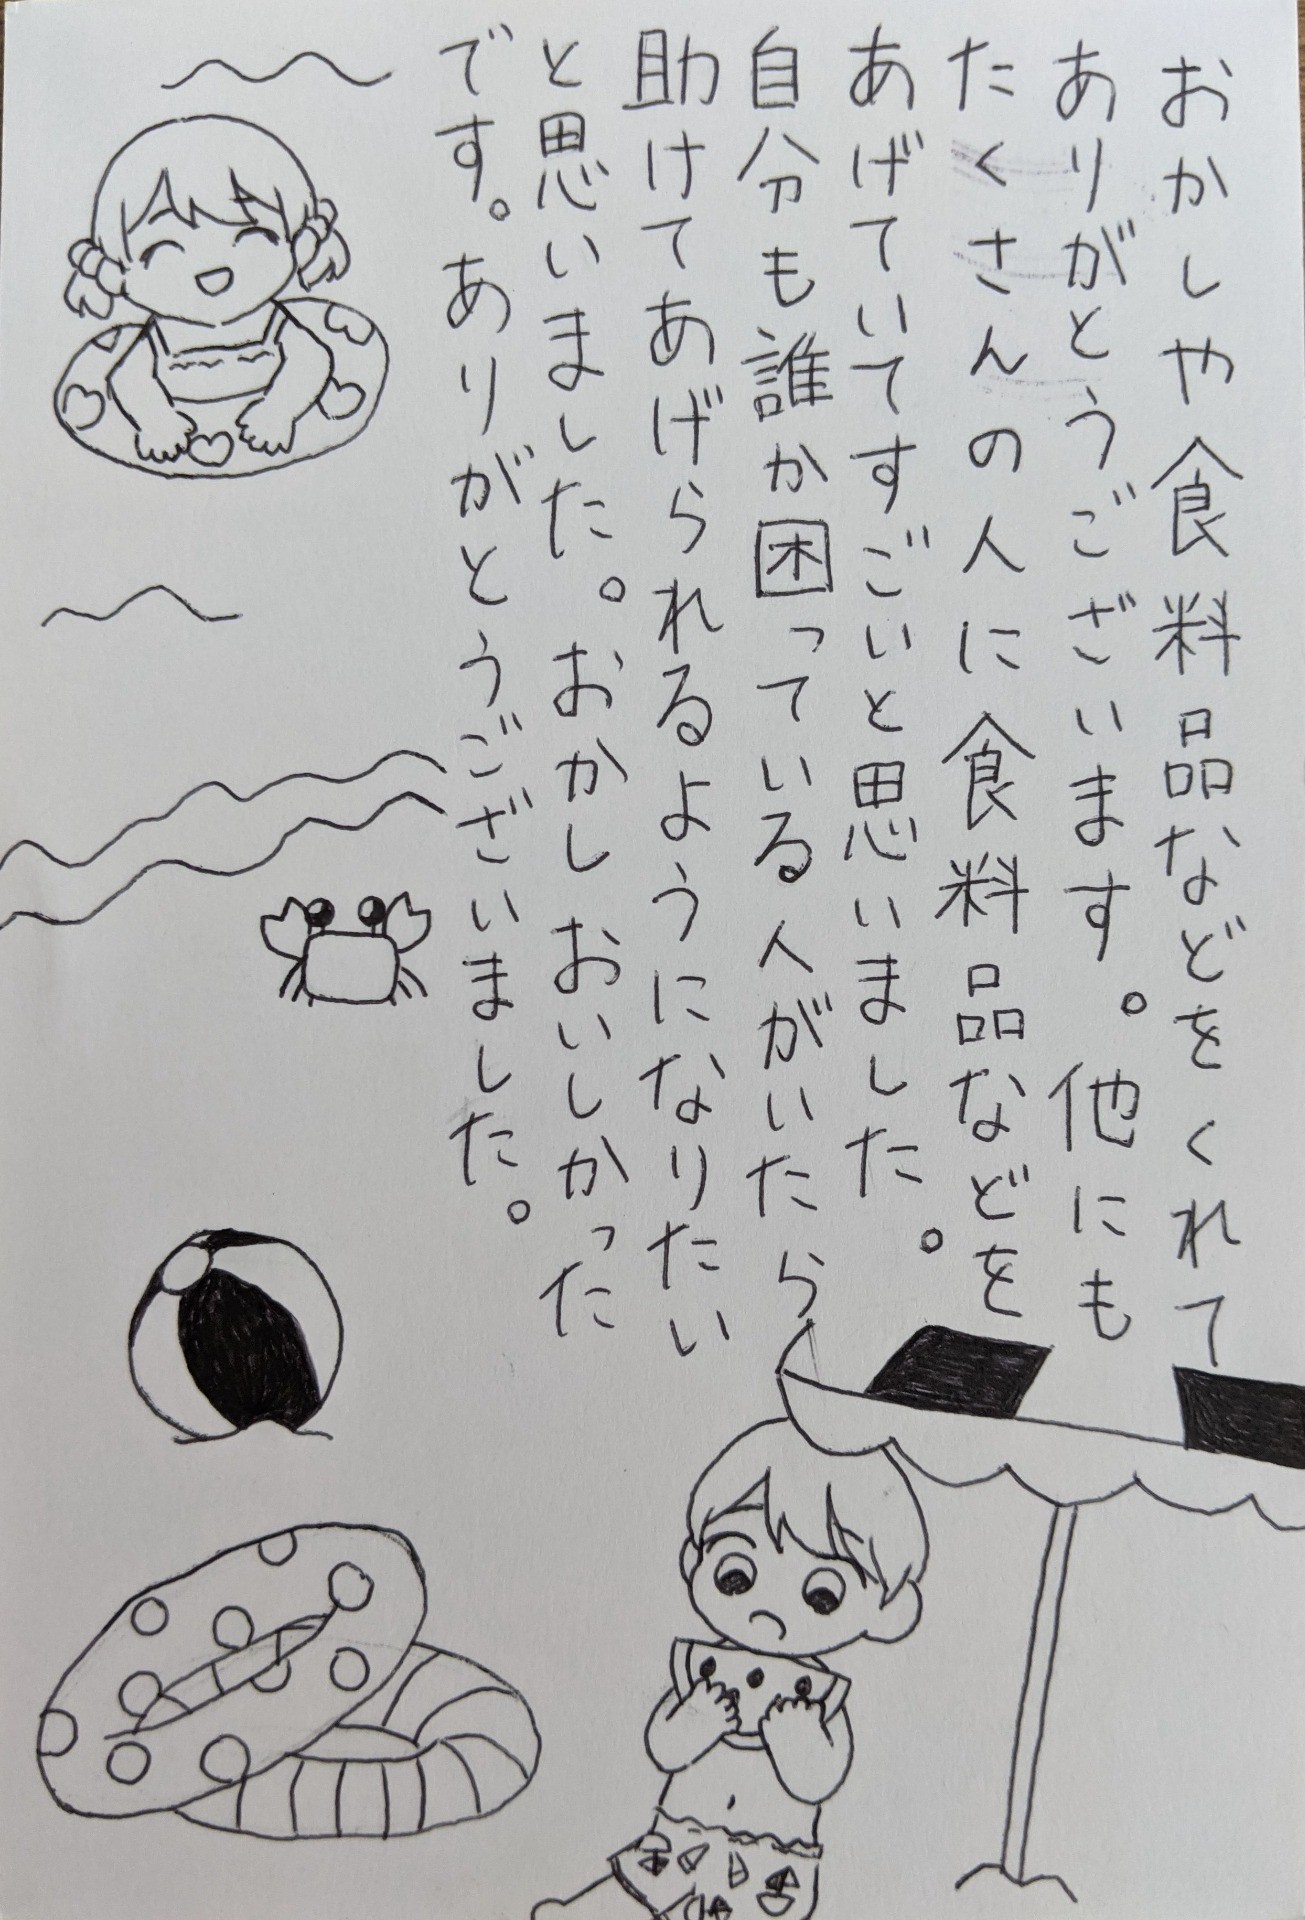 おかしや食料品などをくれて
ありがとうございます。他にも
たくさんの人に食料品などを
あげていてすごいと思いました。
自分も誰か困っている人がいたら
助けてあげられるようになりたい
と思いました。おかしおいしかった
です。ありがとうございました。